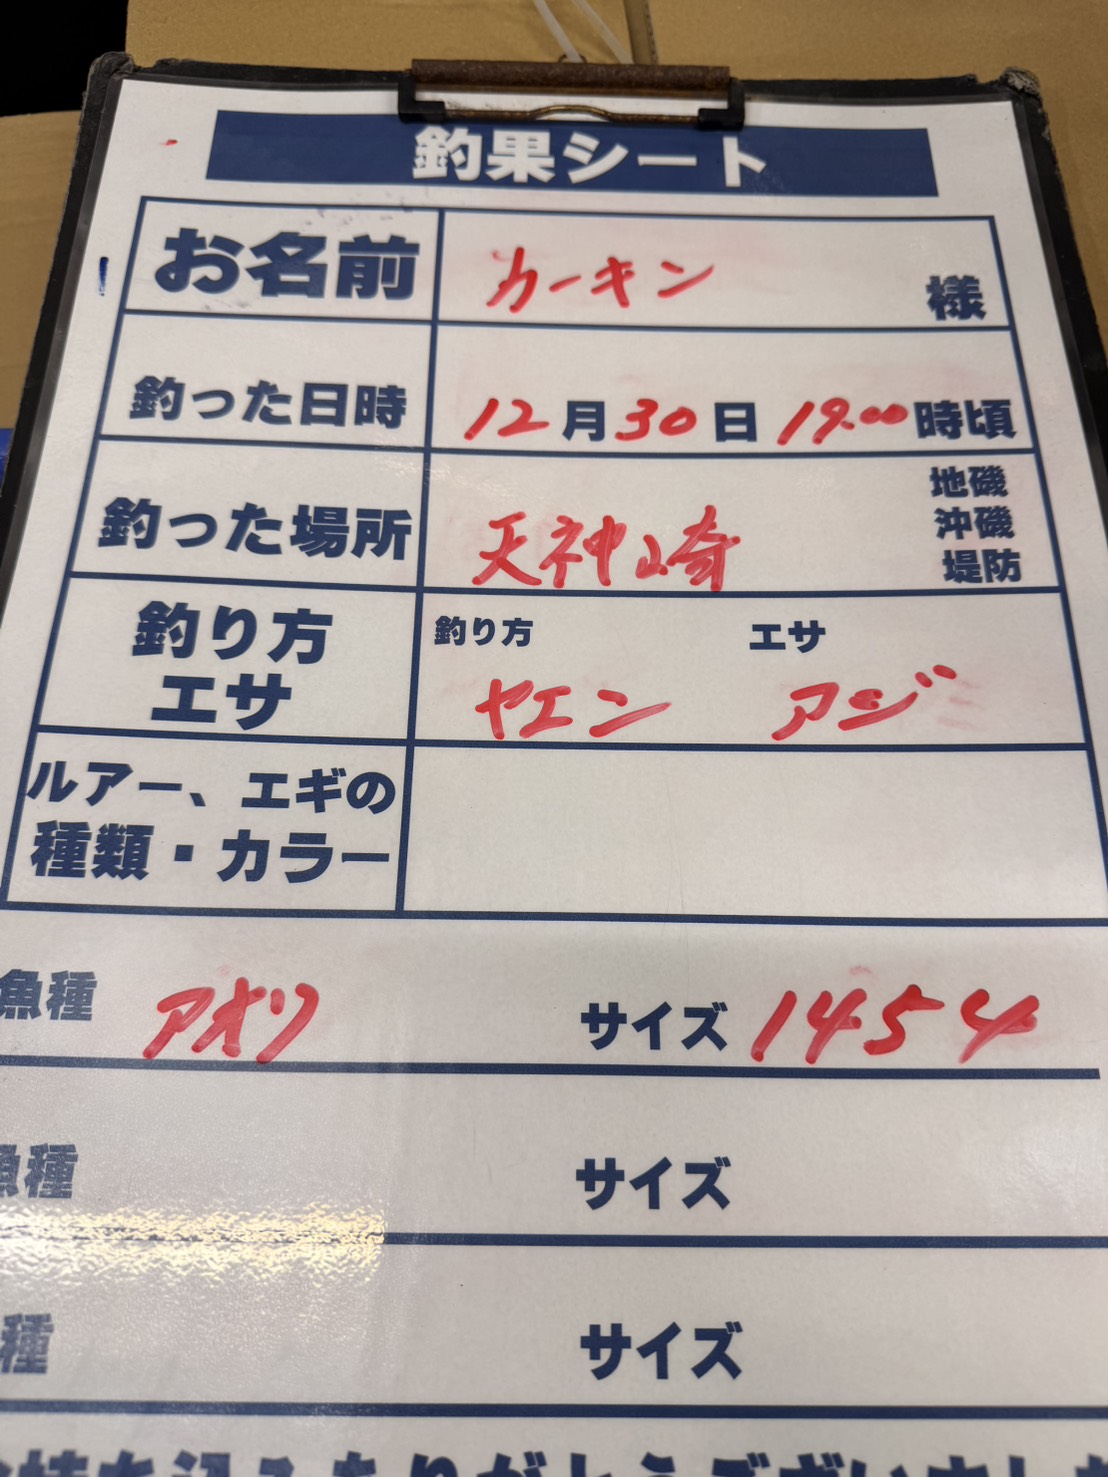 釣果シート
お名前 カーキン 様
釣った日時 12月30日 19.00時頃
釣った場所 天神山崎 地磯
沖磯
堤防
釣り方
エサ
釣り方 エサ
ヤエン アジ
ルアー、エギの
種類・カラー
魚種 アオリ サイズ 1454
魚種 サイズ
種 サイズ
ありがとうございました